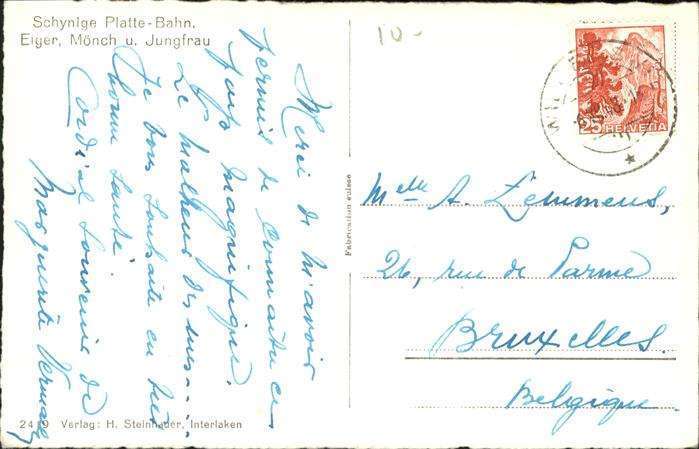 Schynige Platte-Bahn.
Eiger, Mönch u. Jungfrau
10-
Merci de m'avoir
permis de connaître ce
pays magnifique.
Le malheur des uns....
Je vous souhaite en
bonne santé.
Cordial souvenir de
Marguerite
Fabrication suisse
25 HELVETIA
Melle A. Lemmens,
26, rue de Parme
Bruxelles.
Belgique.
2419 Verlag: H. Steinhauer, Interlaken